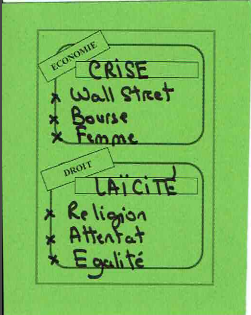 ECONOMIE
CRISE
x Wall Street
x Bourse
x Femme
DROIT
LAÏCITÉ
x Religion
x Attentat
x Egalité